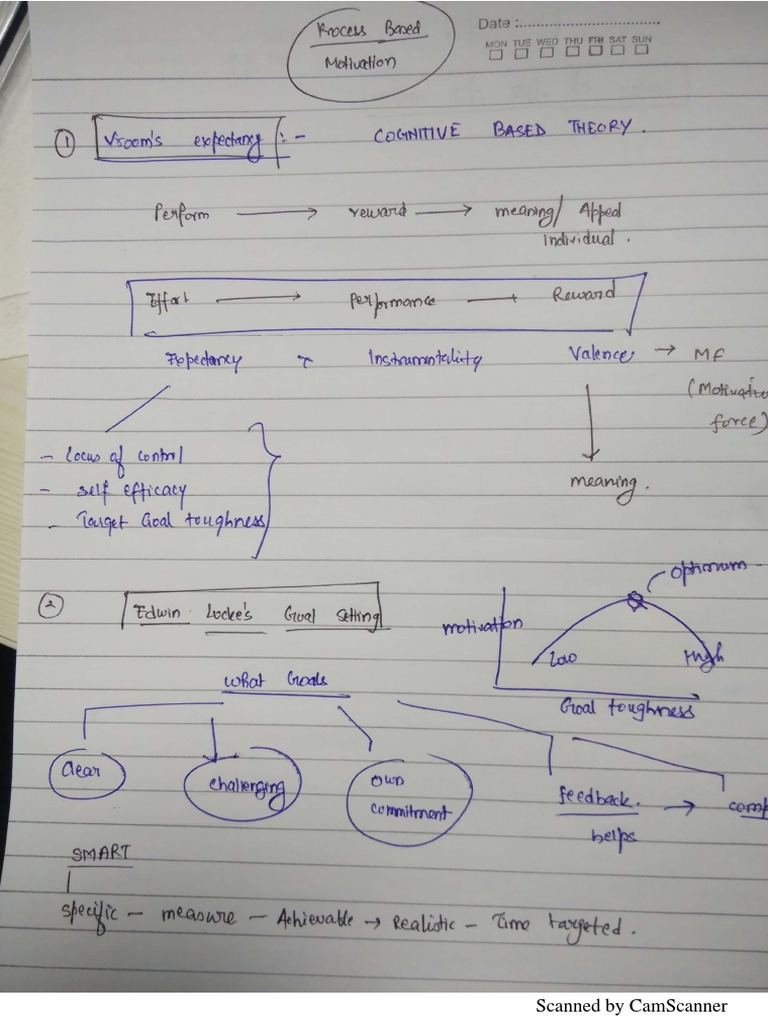 Process Based
Motivation
Date :
MON TUE WED THU FRI SAT SUN
① Vroom's expectancy :- COGNITIVE BASED THEORY.
Perform → reward → meaning/ Appeal
individual.
Effort → Performance → Reward
Expectancy Instrumentality Valence → MF
(Motivation
force)
- locus of control
- self efficacy
- Target Goal toughness
meaning.
② Edwin Locke's Goal Setting
optimum
motivation
low High
Goal toughness
What Goals
Clear
challenging
own
commitment
feedback. → comp
helps
SMART
specific - measure - Achievable → Realistic - Time targeted.
Scanned by CamScanner